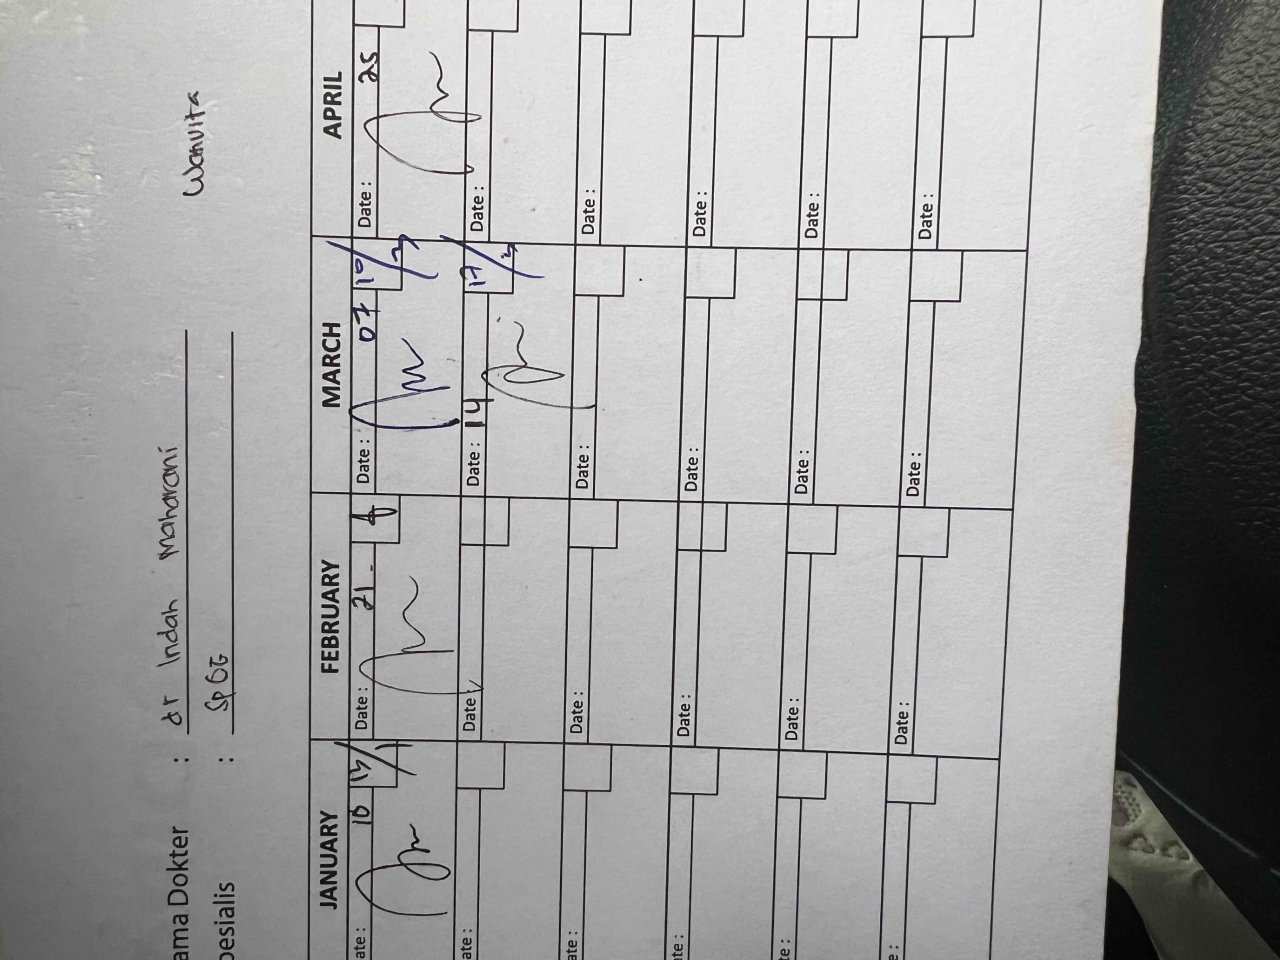 ama Dokter : dr Indah Maharani Wanvita
pesialis : SpOG
JANUARY FEBRUARY MARCH APRIL
ate : 10 13/1 Date : 21 Date : 07 10/3 Date : 25
ate : Date : Date : 14 17/3 Date :
ate : Date : Date : Date :
te : Date : Date : Date :
te : Date : Date : Date :
te : Date : Date : Date :